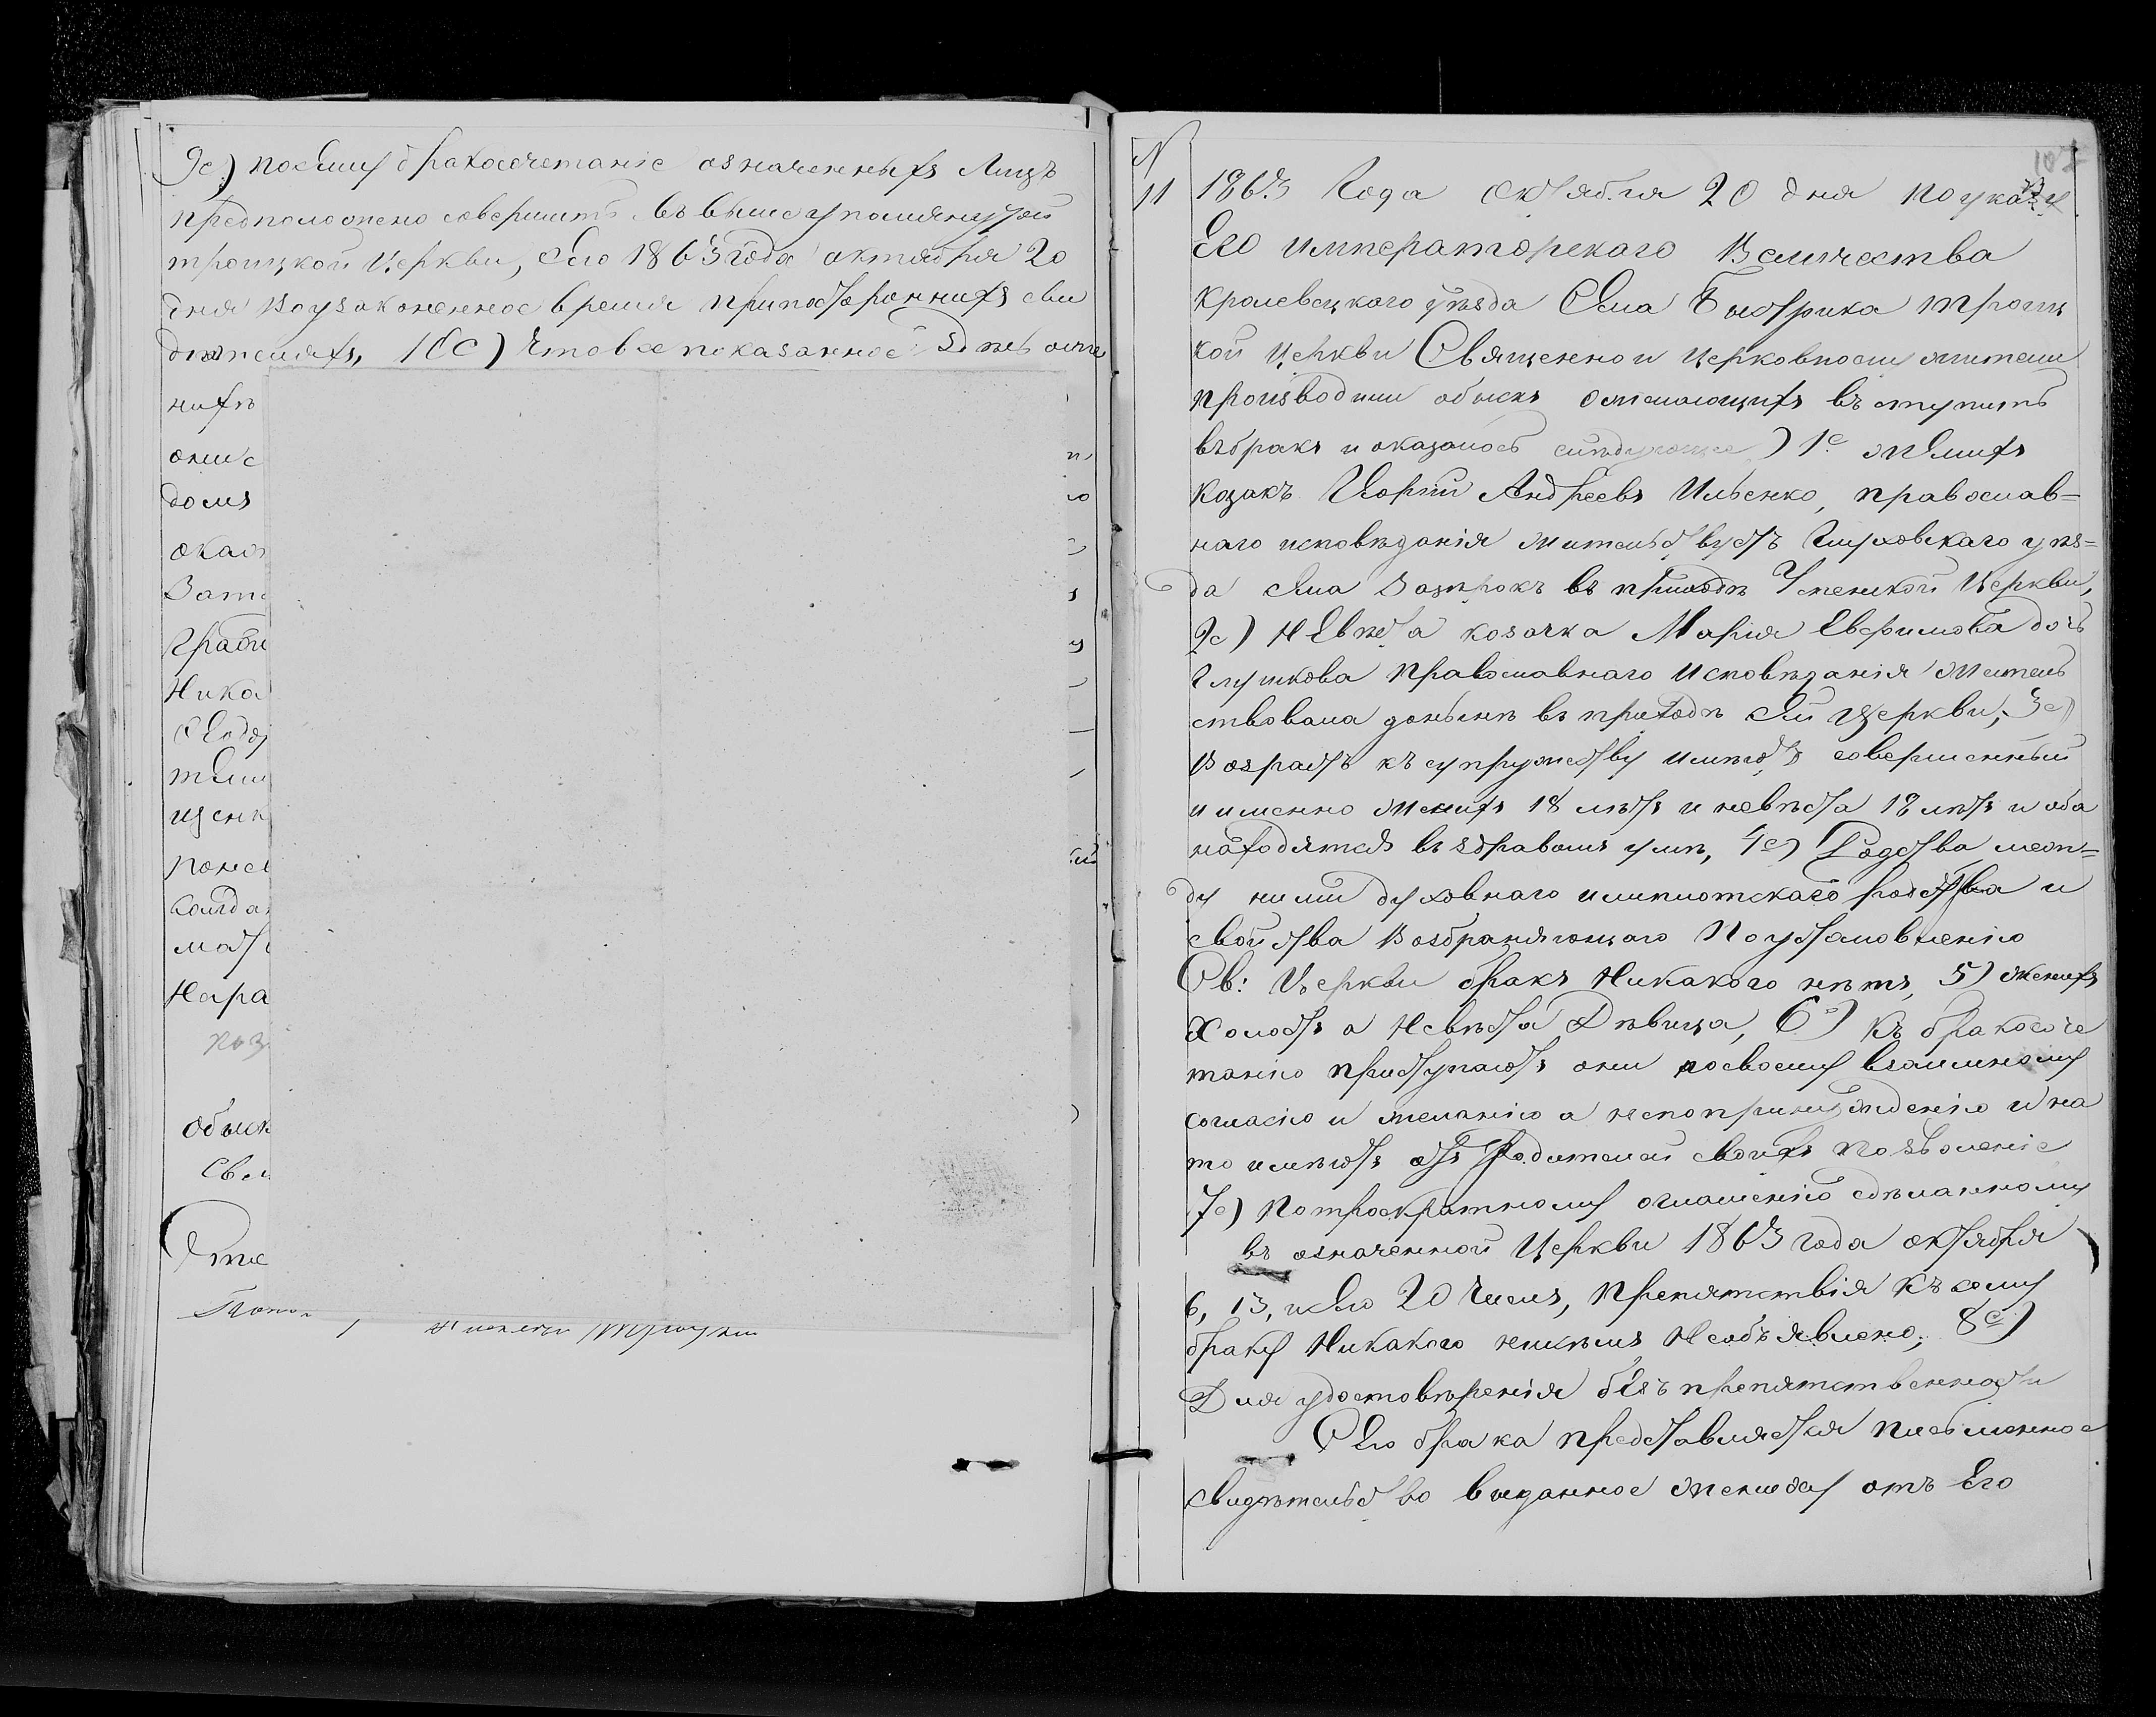 9е) посему бракосочетаніе означенныхъ Лицъ
предположено совершить въ вышеупомянутой
троицкой Церкви, сего 1863 года октября 20
дня Воузаконенное время припостороннихъ сви
дѣтеляхъ, 10е) Что все показанное здѣсь
нихъ
они с
домъ
окаж
Зато
Граби
Ника
щенк
мат
Нера
обыск
107
N
11 1863 Года октября 20 дня поуказу
Его императорскаго Величества
Кролевецкого уѣзда Села Быстрика троиц
кой церкви Священно и церковнослужители
производили обыскъ о желающихъ вступить
въбракъ и оказалось слѣдующее) 1е женихъ
Козакъ Андреевъ Ильенко, православ=
наго исповѣданія жительствуетъ Глуховскаго уѣз=
да села Зазирокъ въ приходѣ Успенской Церкви,
2е) Невѣста козачка Марія Евфимова дочь
Глушкова Православнаго Исповѣданія жительс
ствовала донынѣ въ приходѣ сей Церкви, 3е)
Возрастъ къ супружеству имѣютъ совершенный
и именно женихъ 18 лѣтъ и невѣста 18 лѣтъ и оба
находятся въ здравомъ умѣ, 4е) Родства меж=
ду ними духовнаго илиплотскаго родства и
свойства Возбраняющаго По установленію
Св: Церкви бракъ Никакого нѣтъ, 5) женихъ
Холостъ а Невѣста Дѣвица, 6е) къ бракосоче
танію приступаютъ они посвоему взаимному
согласію и желанію а непопринужденію и на
то имѣютъ отъ Родителей своихъ позволеніе
7е) Потроекратному оглашенію сдѣланному
въ означенной Церкви 1863 года октября
6, 13, и сего 20 Числъ, Препятствія къ сему
браку Никакого никѣмъ Необъявлено, 8е)
Для удостовѣренія безъ препятственности
Сего брака представляется письменное
свидѣтельство выданное жениху отъ Его